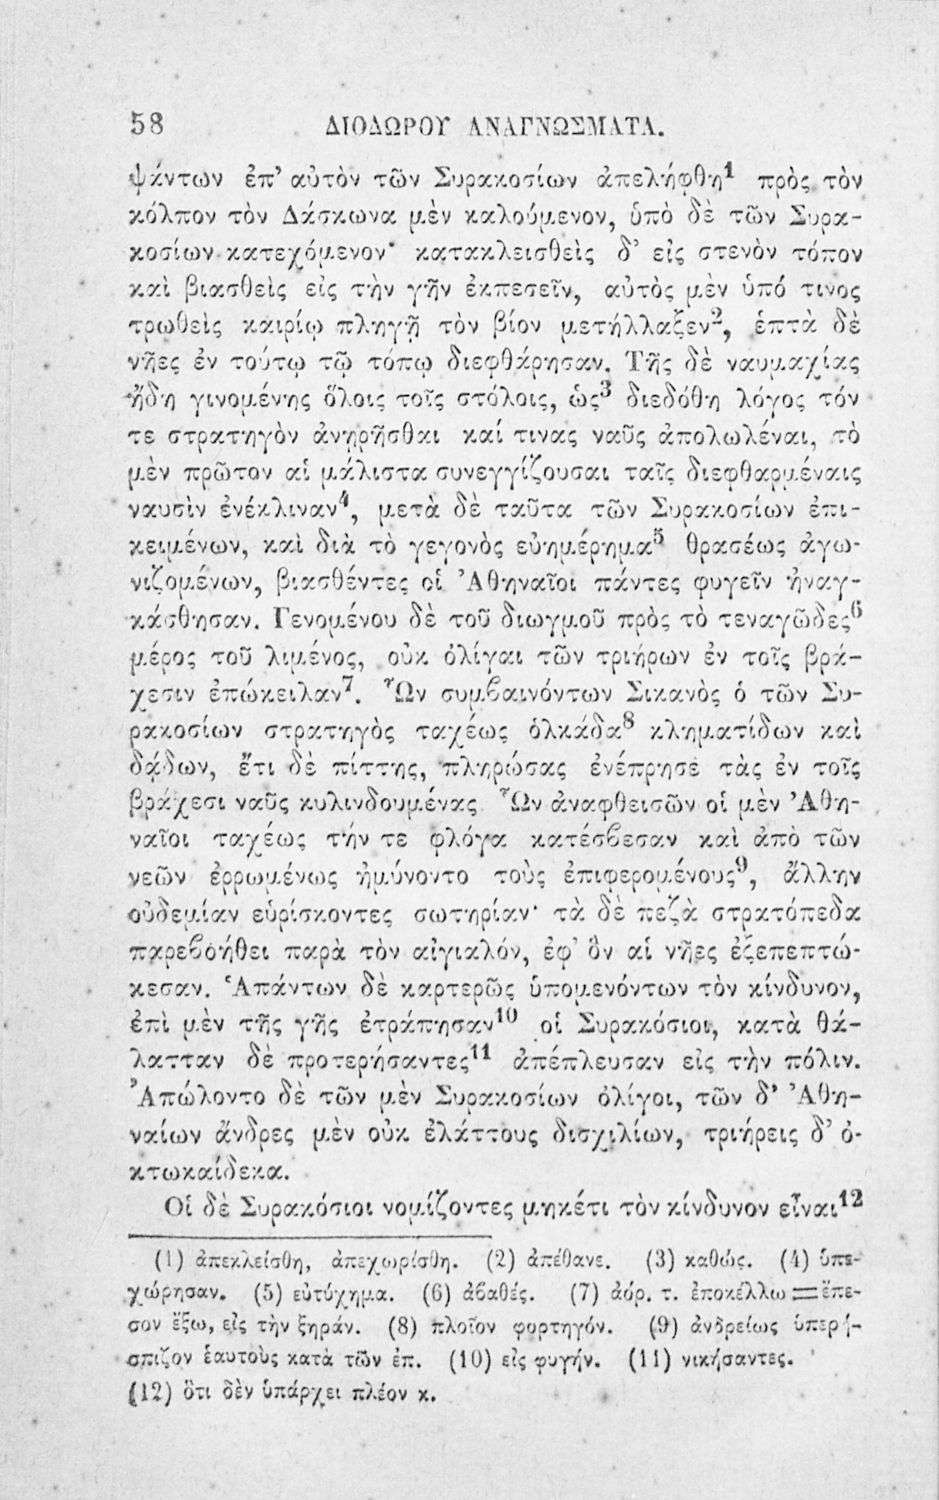 58 ΔΙΟΔΩΡΟΥ ΑΝΑΓΝΩΣΜΑΤΑ.
ψάντων ἐπ’ αὐτὸν τῶν Συρακοσίων ἀπελήφθη¹ πρὸς τὸν
κόλπον τὸν Δάσκωνα μὲν καλούμενον, ὑπὸ δὲ τῶν Συρα-
κοσίων κατεχόμενον· κατακλεισθεὶς δ’ εἰς στενὸν τόπον
καὶ βιασθεὶς εἰς τὴν γῆν ἐκπεσεῖν, αὐτὸς μὲν ὑπό τινος
τρωθεὶς καιρίῳ πληγῇ τὸν βίον μετήλλαξεν², ἑπτὰ δὲ
νῆες ἐν τούτῳ τῷ τόπῳ διεφθάρησαν. Τῆς δὲ ναυμαχίας
ἤδη γινομένης ὅλοις τοῖς στόλοις, ὡς³ διεδόθη λόγος τόν
τε στρατηγὸν ἀνῃρῆσθαι καί τινας ναῦς ἀπολωλέναι, τὸ
μὲν πρῶτον αἱ μάλιστα συνεγγίζουσαι ταῖς διεφθαρμέναις
ναυσὶν ἐνέκλιναν⁴, μετὰ δὲ ταῦτα τῶν Συρακοσίων ἐπι-
κειμένων, καὶ διὰ τὸ γεγονὸς εὐημέρημα⁵ θρασέως ἀγω-
νιζομένων, βιασθέντες οἱ Ἀθηναῖοι πάντες φυγεῖν ἠναγ-
κάσθησαν. Γενομένου δὲ τοῦ διωγμοῦ πρὸς τὸ τεναγῶδες⁶
μέρος τοῦ λιμένος, οὐκ ὀλίγαι τῶν τριήρων ἐν τοῖς βρά-
χεσιν ἐπώκειλαν⁷. Ὧν συμβαινόντων Σικανὸς ὁ τῶν Συ-
ρακοσίων στρατηγὸς ταχέως ὁλκάδα⁸ κληματίδων καὶ
δᾴδων, ἔτι δὲ πίττης, πληρώσας ἐνέπρησε τὰς ἐν τοῖς
βράχεσι ναῦς κυλινδουμένας. Ὧν ἀναφθεισῶν οἱ μὲν Ἀθη-
ναῖοι ταχέως τήν τε φλόγα κατέσβεσαν καὶ ἀπὸ τῶν
νεῶν ἐρρωμένως ἠμύνοντο τοὺς ἐπιφερομένους⁹, ἄλλην
οὐδεμίαν εὑρίσκοντες σωτηρίαν· τὰ δὲ πεζὰ στρατόπεδα
παρεβοήθει παρὰ τὸν αἰγιαλόν, ἐφ’ ὃν αἱ νῆες ἐξεπεπτώ-
κεσαν. Ἁπάντων δὲ καρτερῶς ὑπομενόντων τὸν κίνδυνον,
ἐπὶ μὲν τῆς γῆς ἐτράπησαν¹⁰ οἱ Συρακόσιοι, κατὰ θά-
λατταν δὲ προτερήσαντες¹¹ ἀπέπλευσαν εἰς τὴν πόλιν.
Ἀπώλοντο δὲ τῶν μὲν Συρακοσίων ὀλίγοι, τῶν δ’ Ἀθη-
ναίων ἄνδρες μὲν οὐκ ἐλάττους δισχιλίων, τριήρεις δ’ ὀ-
κτωκαίδεκα.
Οἱ δὲ Συρακόσιοι νομίζοντες μηκέτι τὸν κίνδυνον εἶναι¹²
(1) ἀπεκλείσθη, ἀπεχωρίσθη. (2) ἀπέθανε. (3) καθώς. (4) ὑπε-
χώρησαν. (5) εὐτύχημα. (6) ἀβαθές. (7) ἀόρ. τ. ἐποκέλλω = ἔπε-
σον ἔξω, εἰς τὴν ξηράν. (8) πλοῖον φορτηγόν. (9) ἀνδρείως ὑπερή-
σπιζον ἑαυτοὺς κατὰ τῶν ἐπ. (10) εἰς φυγήν. (11) νικήσαντες.
(12) ὅτι δὲν ὑπάρχει πλέον κ.